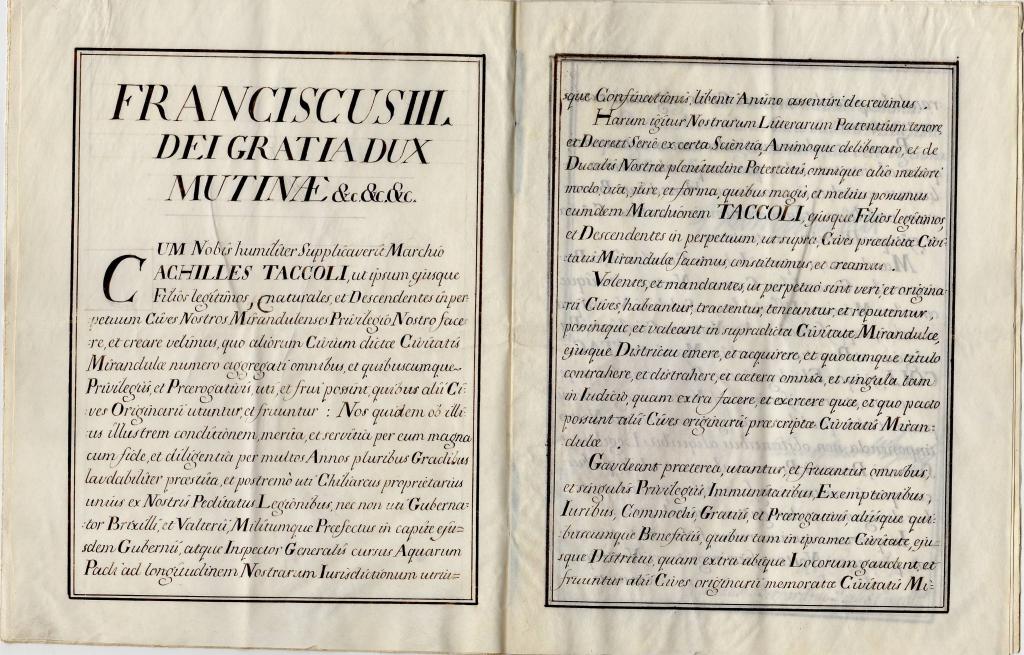 FRANCISCUS III.
DEI GRATIA DUX
MUTINÆ &c. &c. &c.
CUM Nobis humiliter Supplicaverit Marchio
ACHILLES TACCOLI, ut ipsum, ejusque
Filios legitimos, naturales, et Descendentes in per-
petuum Cives Nostros Mirandulenses Privilegio Nostro face
re, et creare velimus, quo aliorum Civium dictæ Civitatis
Mirandulæ numero aggregati omnibus, et quibuscumque
Privilegiis, et Prærogativis, uti, et frui possint, quibus alii Ci-
ves Originarii utuntur, et fruuntur : Nos quidem ob illi-
us illustrem conditionem, merita, et servitia per eum magna
cum fide, et diligentia per multos Annos pluribus Gradibus
laudabiliter præstita, et postremò uti Chiliarcus proprietarius
unius ex Nostris Peditatus Legionibus, nec non uti Guberna-
tor Brixilli, et Valterii, Militumque Præfectus in capite eju-
sdem Gubernii, atque Inspector Generalis cursus Aquarum
Padi ad longitudinem Nostrarum Iurisdictionum utriu=
sque Confinationis, libenti Animo assentiri decrevimus .
Harum igitur Nostrarum Litterarum Patentium tenore,
et Decreti Serie ex certa Scientia, Animoque deliberato, et de
Ducalis Nostræ plenitudine Potestatis, omnique alio meliori
modo, via, jure, et forma, quibus magis, et melius possumus
eumdem Marchionem TACCOLI, ejusque Filios legitimos,
et Descendentes in perpetuum, ut supra, Cives prædictæ Civi-
tatis Mirandulæ facimus, constituimus, et creamus .
Volentes, et mandantes, ut perpetuo sint veri, et origina-
rii Cives, habeantur, tractentur, teneantur, et reputentur,
possintque, et valeant in supradicta Civitate, Mirandulæ,
ejusque Districtu emere, et acquirere, et quocumque titulo
contrahere, et distrahere, et cætera omnia, et singula tam
in Iudicio, quam extra facere, et exercere quæ, et quo pacto
possunt alii Cives originarii præscriptæ Civitatis Miran-
dulæ .
Gaudeant præterea, utantur, et fruantur omnibus,
et singulis Privilegiis, Immunitatibus, Exemptionibus,
Iuribus, Commodis, Gratiis, et Prærogativis, aliisque qui-
buscumque Beneficiis, quibus tam in ipsamet Civitate, eju=
sque Districtu, quam extra ubique Locorum gaudent, et
fruuntur alii Cives originarii memoratæ Civitatis Mi-